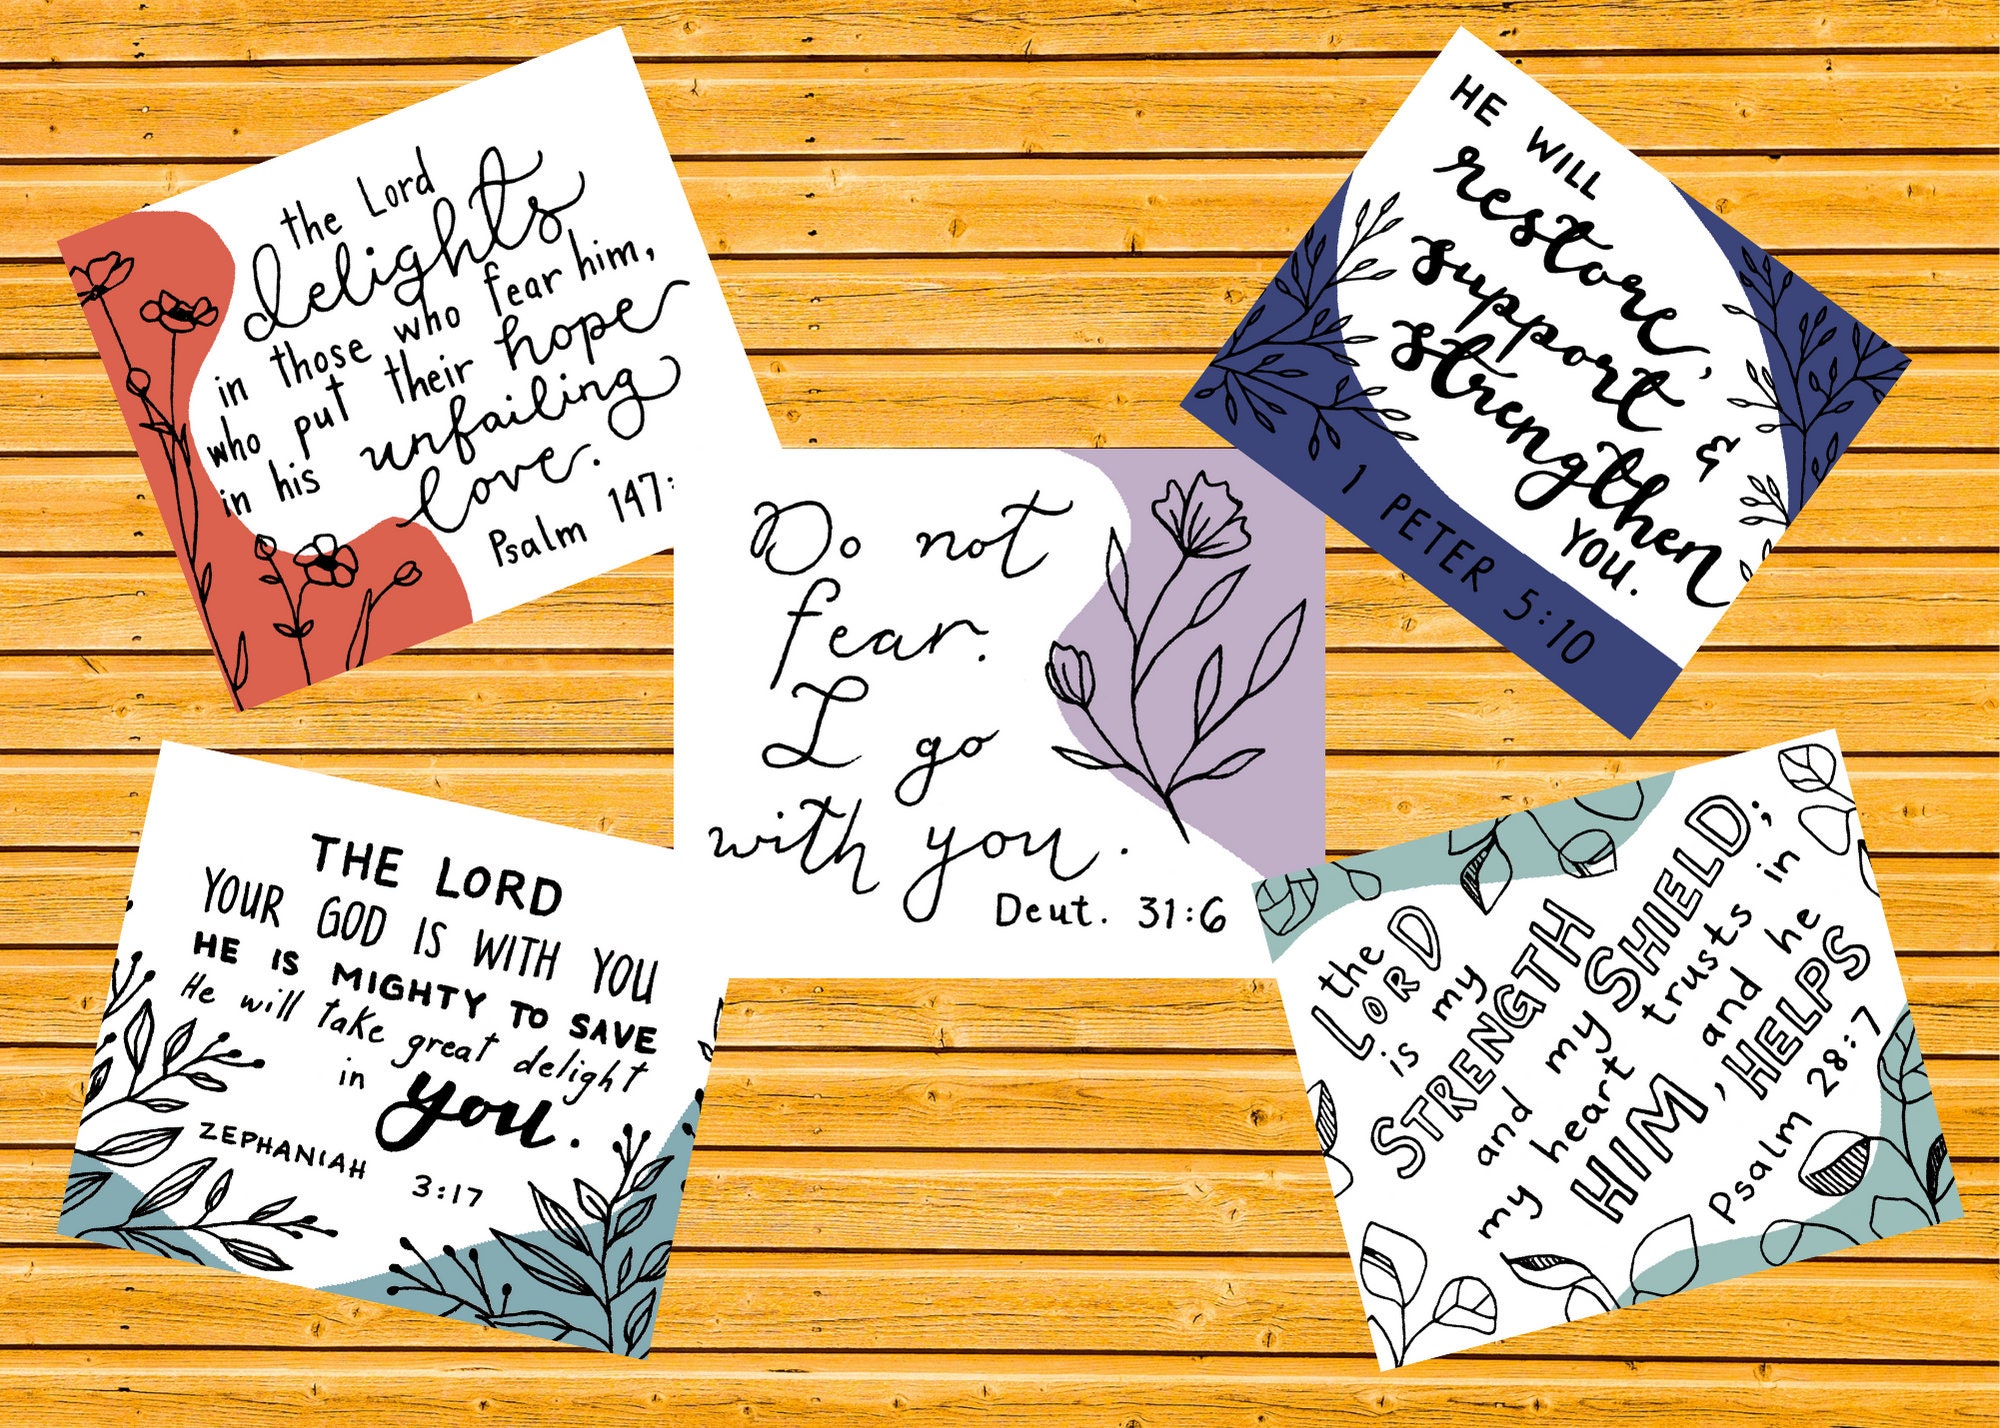 the Lord
delights
in those who fear him,
who put their hope
in his unfailing
love.
Psalm 147:
HE WILL
restore,
support &
strengthen
YOU.
1 PETER 5:10
Do not
fear.
I go
with you.
Deut. 31:6
THE LORD
YOUR GOD IS WITH YOU
HE IS MIGHTY TO SAVE
He will take great delight
in you.
ZEPHANIAH 3:17
the
LORD
is my
STRENGTH
and my SHIELD;
my heart trusts in
HIM, and he
HELPS
Psalm 28:7